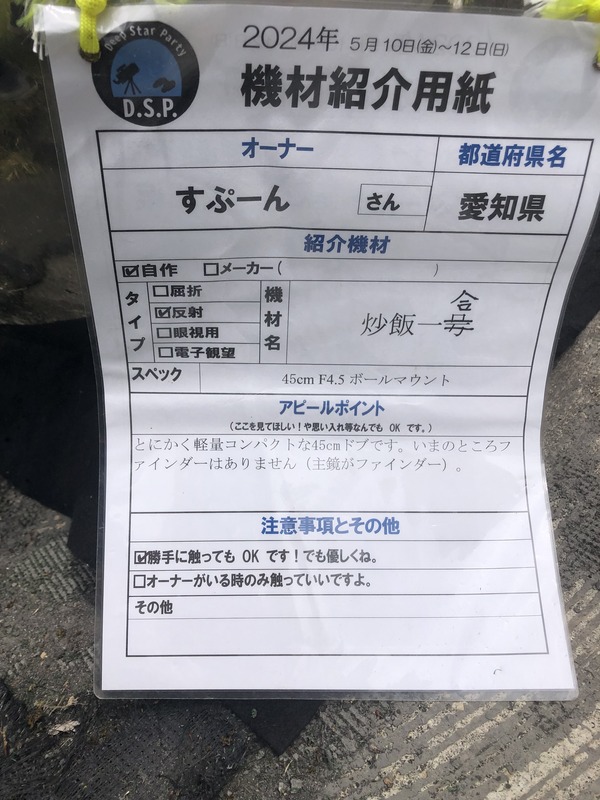 Deep Star Party
D.S.P.
2024年 5月10日(金)～12日(日)
機材紹介用紙
オーナー
都道府県名
すぷーん さん
愛知県
紹介機材
☑自作 □メーカー( )
タイプ
□屈折
☑反射
□眼視用
□電子観望
機材名
合
炒飯一号
スペック
45cm F4.5 ボールマウント
アピールポイント
(ここを見てほしい！や思い入れ等なんでも OK です。)
とにかく軽量コンパクトな45cmドブです。いまのところフ
ァインダーはありません（主鏡がファインダー）。
注意事項とその他
☑勝手に触っても OK です！でも優しくね。
□オーナーがいる時のみ触っていいですよ。
その他